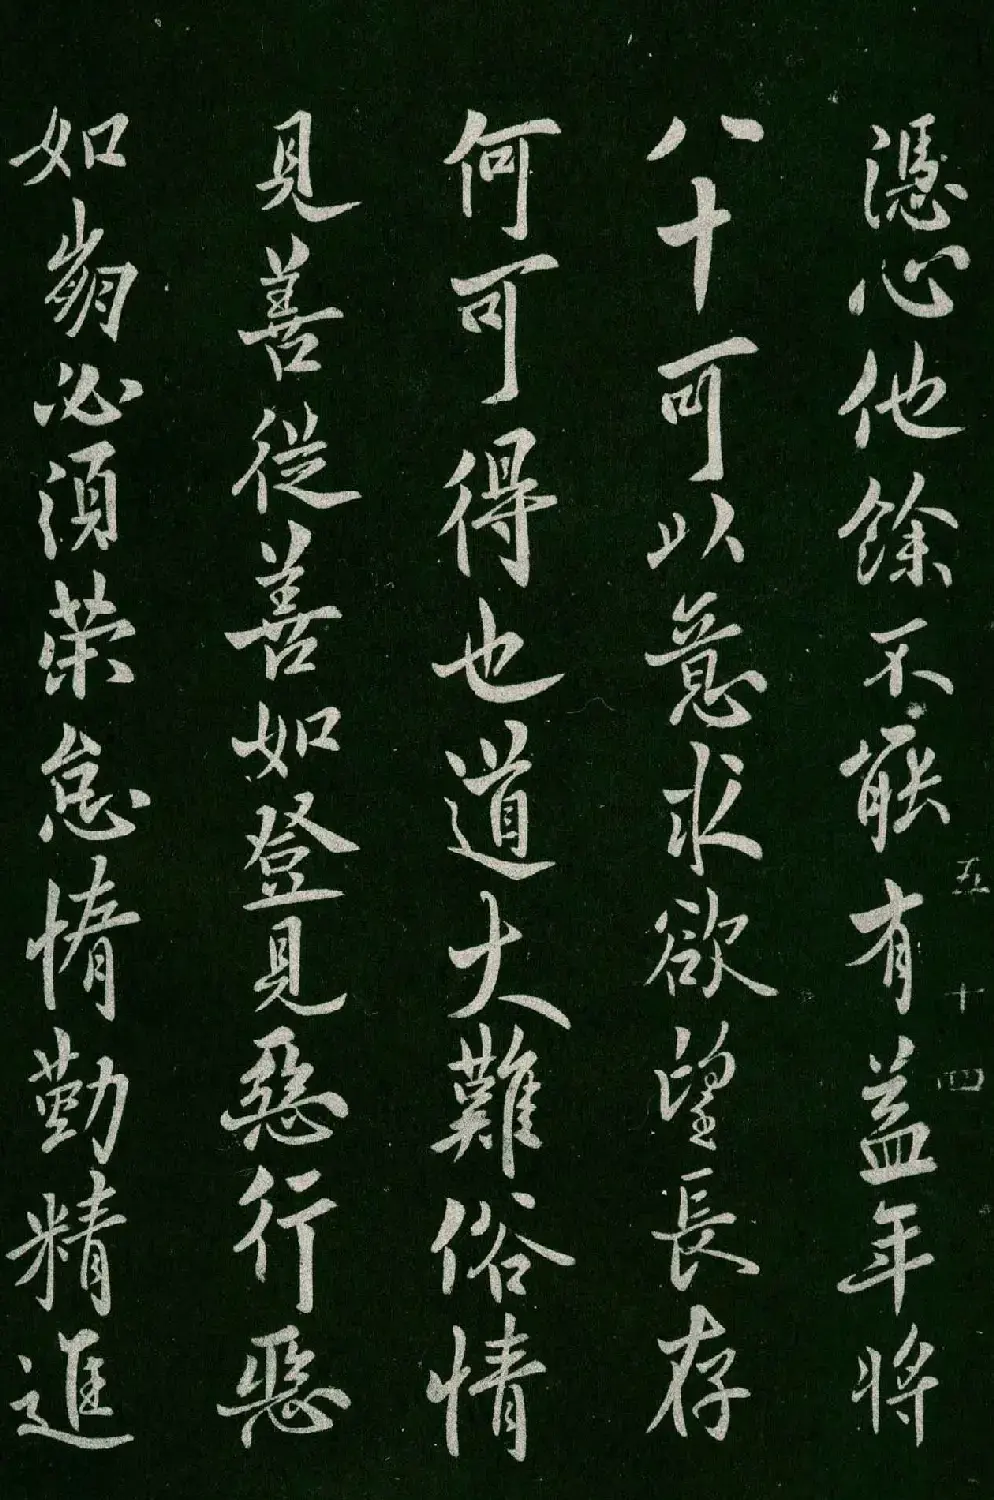 五十四
憑心他餘不能有益年將
八十可以意求欲望長存
何可得也道大難俗情
見善從善如登見惡行惡
如崩必須策怠惰勤精進